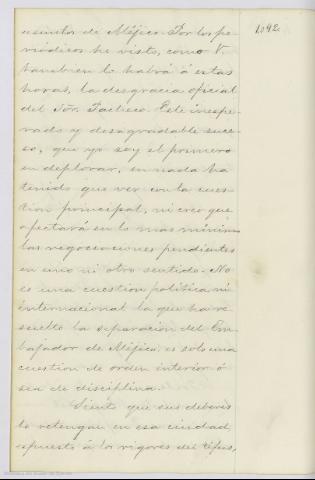 1092.
asuntos de Méjico. Por los pe-
riódicos he visto, como V.
tambien lo habrá á estas
horas, la desgracia oficial
del Sor. Pacheco. Este inespe-
rado y desagradable suce-
so, que yo soy el primero
en deplorar, en nada ha
tenido que ver con la cues-
tion principal, ni creo que
afectará en lo mas mínimo
las negociaciones pendientes
en uno ni otro sentido. No
es una cuestion política ni
internacional la que ha re-
suelto la separacion del Em-
bajador de Méjico: es solo una
cuestion de orden interior ó
sea de disciplina.
Siento que sus deberes
lo retengan en esa ciudad,
expuesto á los rigores del tifus,